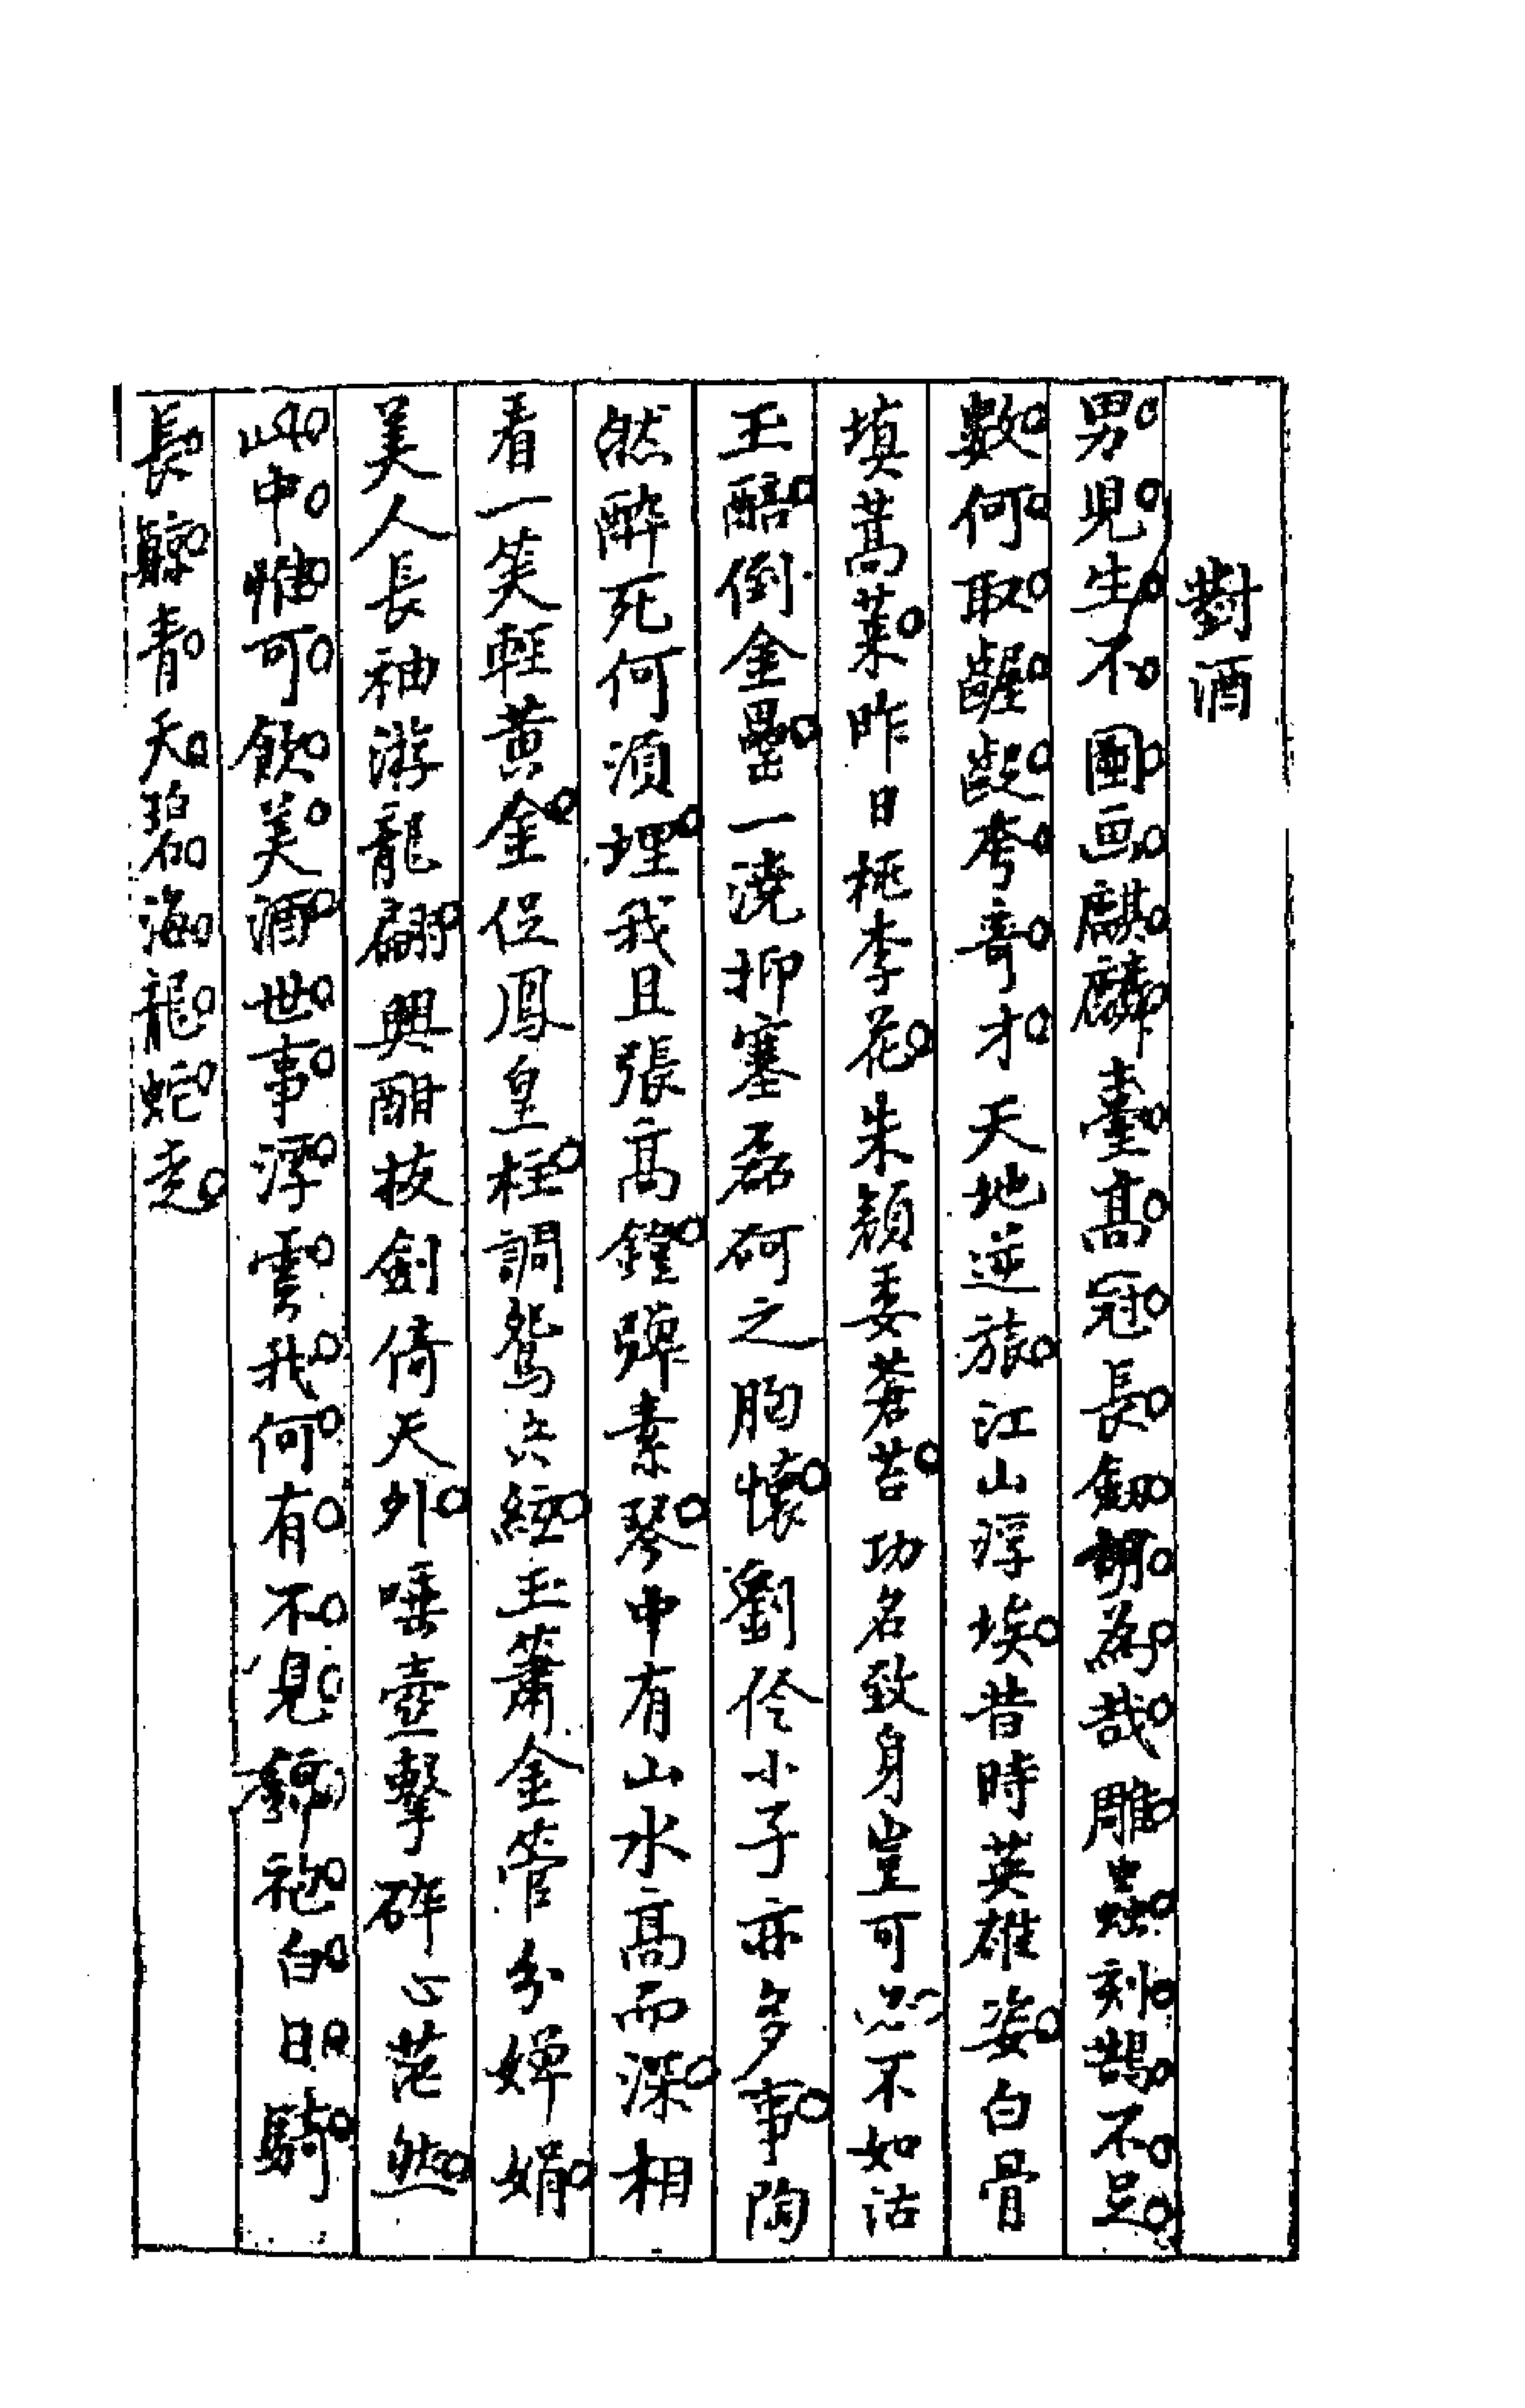 對酒
男児生不圖画麒麟臺高冠長劔胡為哉雕蟲刻鵠不足
數何取齷齪夸竒才天地逆旅江山浮埃昔時英雄姿白骨
填蒿萊昨日桃李花朱顏委蒼苔功名致身豈可必不如沽
玉醅倒金罍一澆抑塞磊砢之胸懷劉伶小子亦多事陶
然醉死何湏埋我且張高鐘彈素琴中有山水高而深相
看一笑輕黄金促鳳皇柱調鴛央絃玉簫金管分嬋娟
美人長袖游龍翩興酣抜劍倚天外唾壺擊碎心茫然
山中惟可飲美酒世事浮雲我何有不見錦袍白日騎
長鯨青天碧海龍蛇走